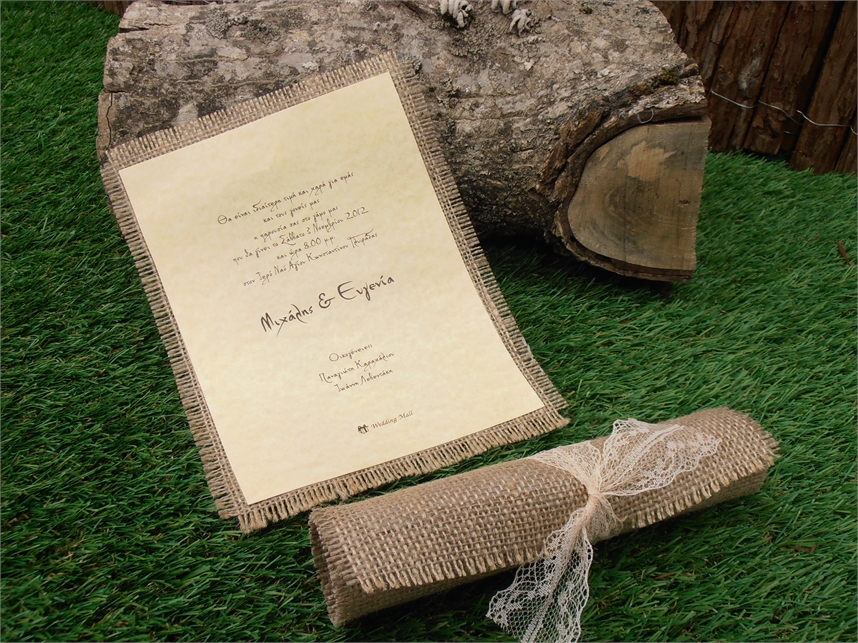 Θα είναι ιδιαίτερη τιμή και χαρά για εμάς
και τους γονείς μας
η παρουσία σας στο γάμο μας
που θα γίνει το Σάββατο 3 Νοεμβρίου 2012
και ώρα 8.00 μμ.
στον Ιερό Ναό Αγίου Κωνσταντίνου Γλυφάδας
Μιχάλης & Ευγενία
Οικογένειες
Παναγιώτη
Ιωάννη
Wedding Mall